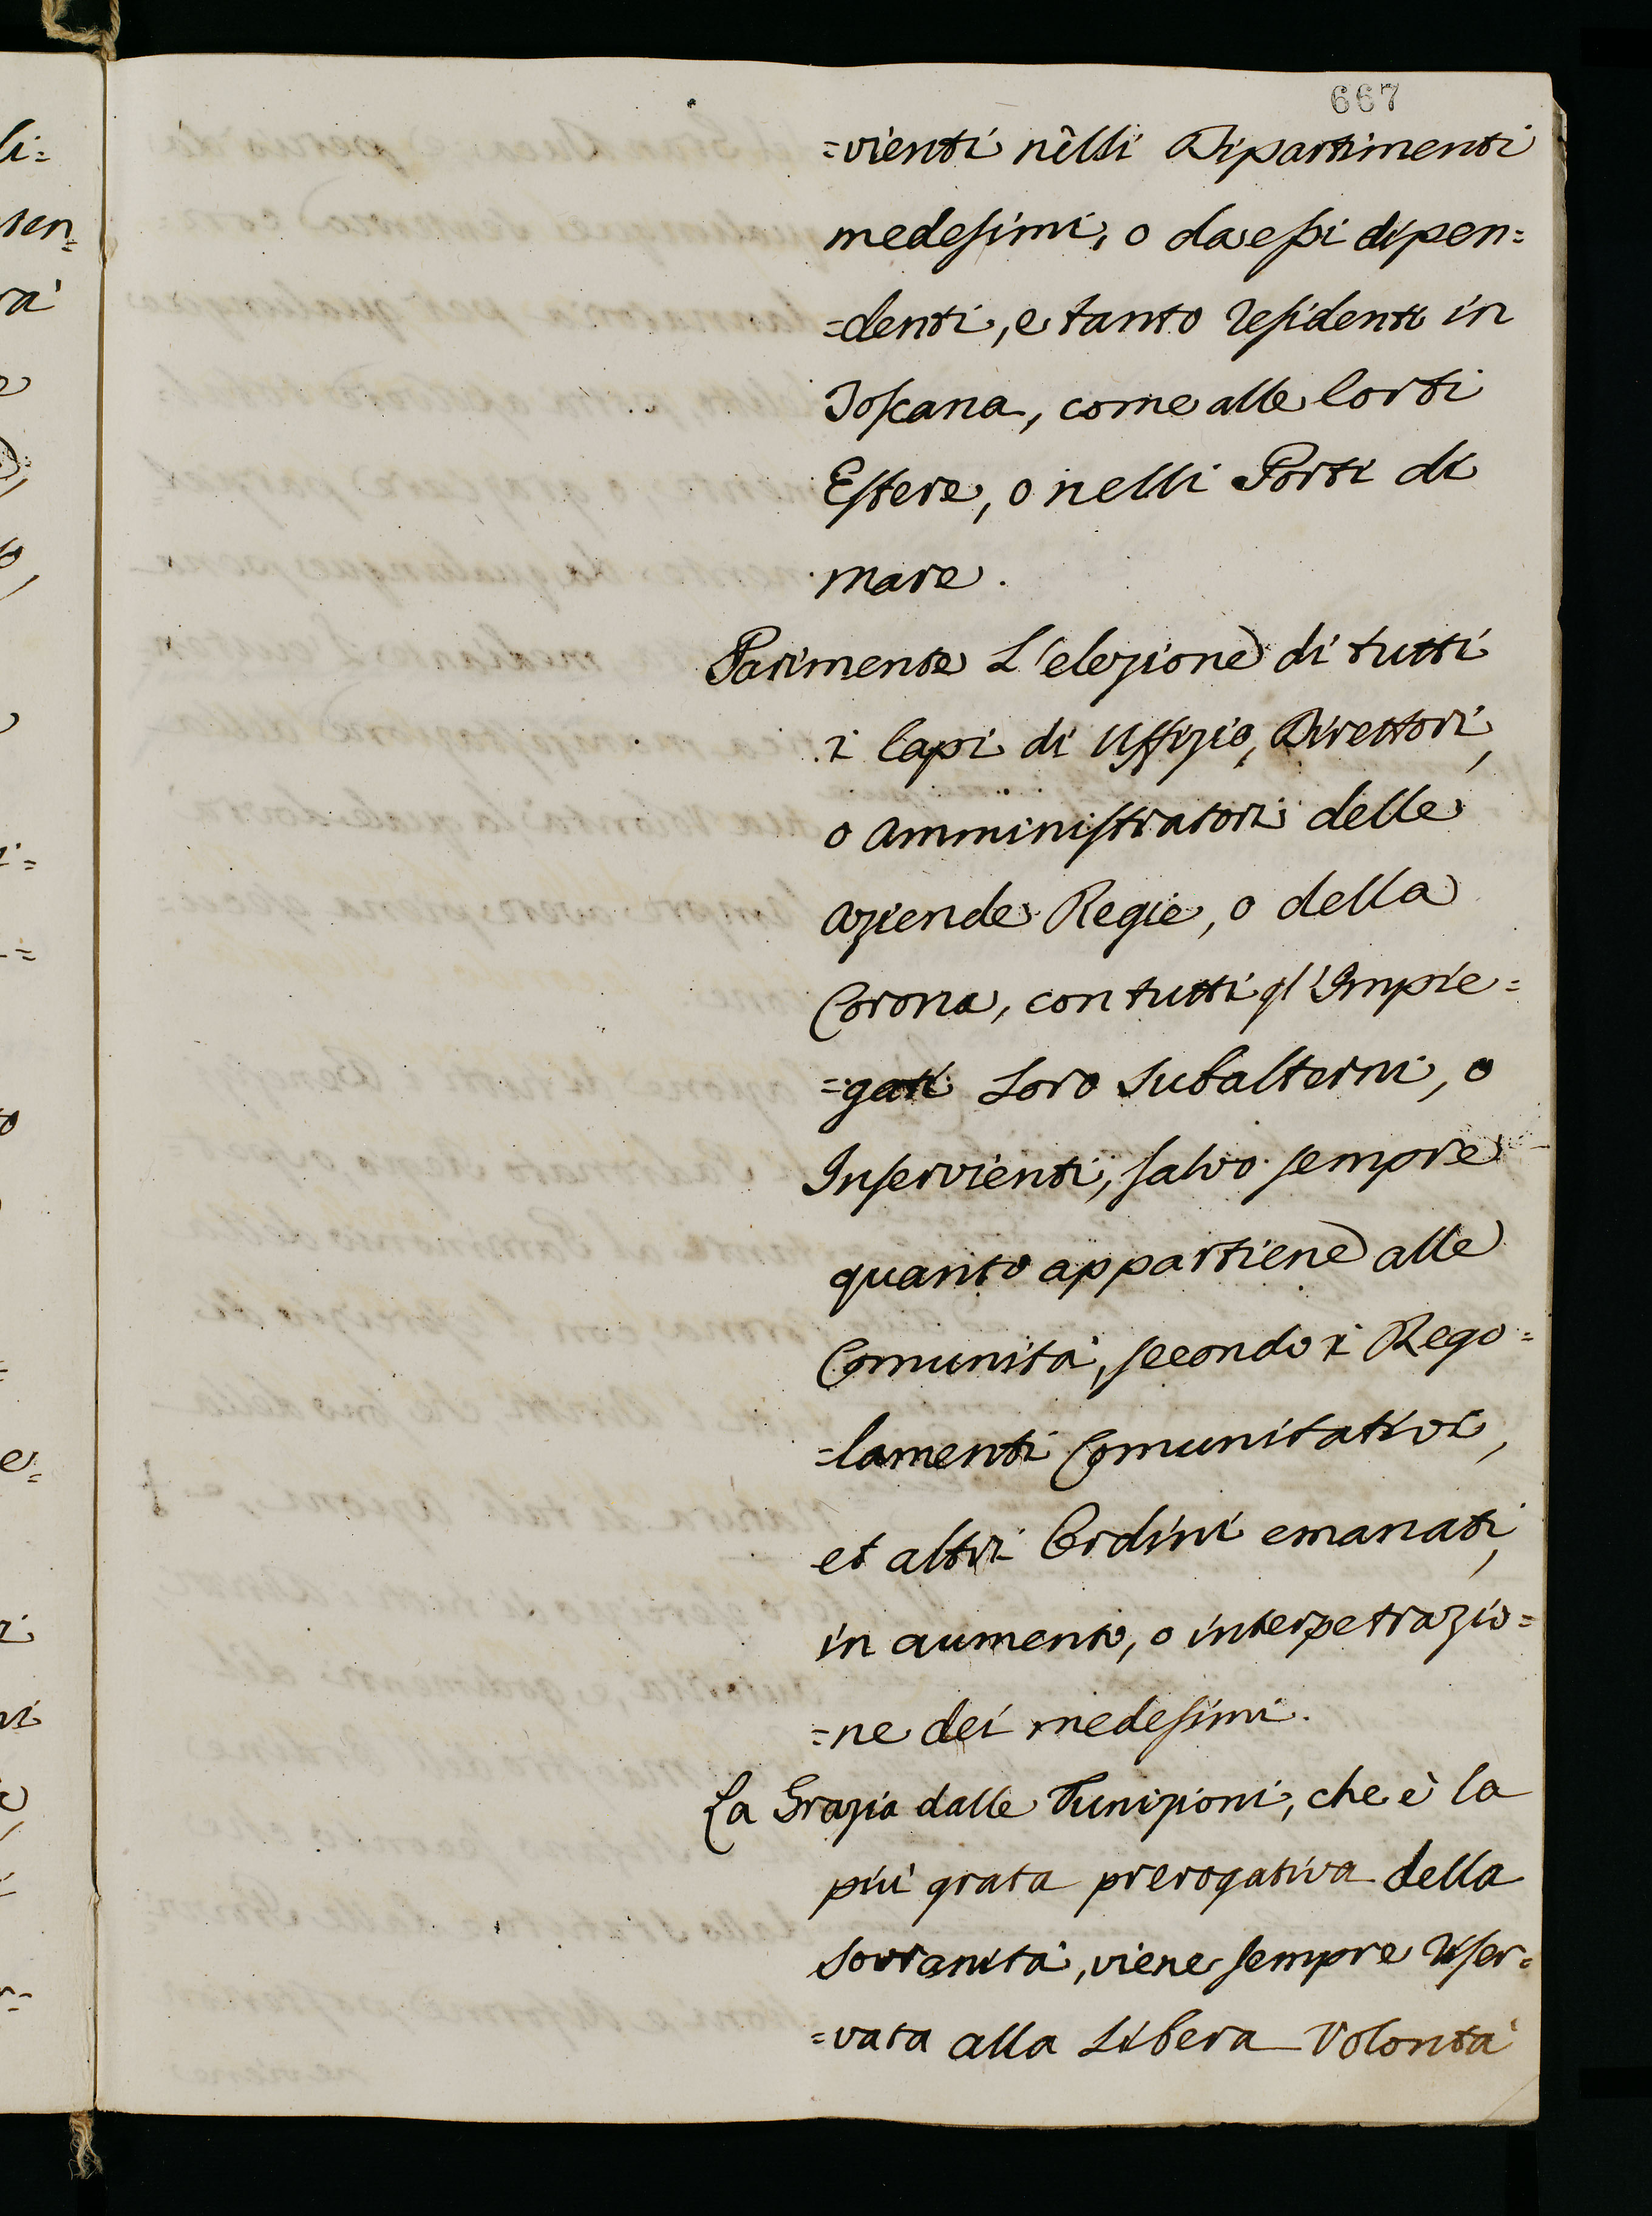 667
=vienti nelli Dipartimenti
medesimi, o da essi dipen=
=denti, e tanto residenti in
Toscana, come alle Corti
Estere, o nelli Porti di
mare.
Parimente L'elezione di tutti
i Capi di Uffizio, Direttori,
o Amministratori delle
Aziende Regie, o della
Corona, con tutti gl'Impie=
=gati Loro Subalterni, o
Inservienti, salvo sempre
quanto appartiene alle
Comunità, secondo i Rego=
=lamenti Comunitativi,
et altri Ordini emanati,
in aumento, o interpetrazio=
=ne dei medesimi.
La Grazia dalle Punizioni, che è la
più grata prerogativa della
Sovranità, viene sempre riser=
=vata alla Libera Volontà